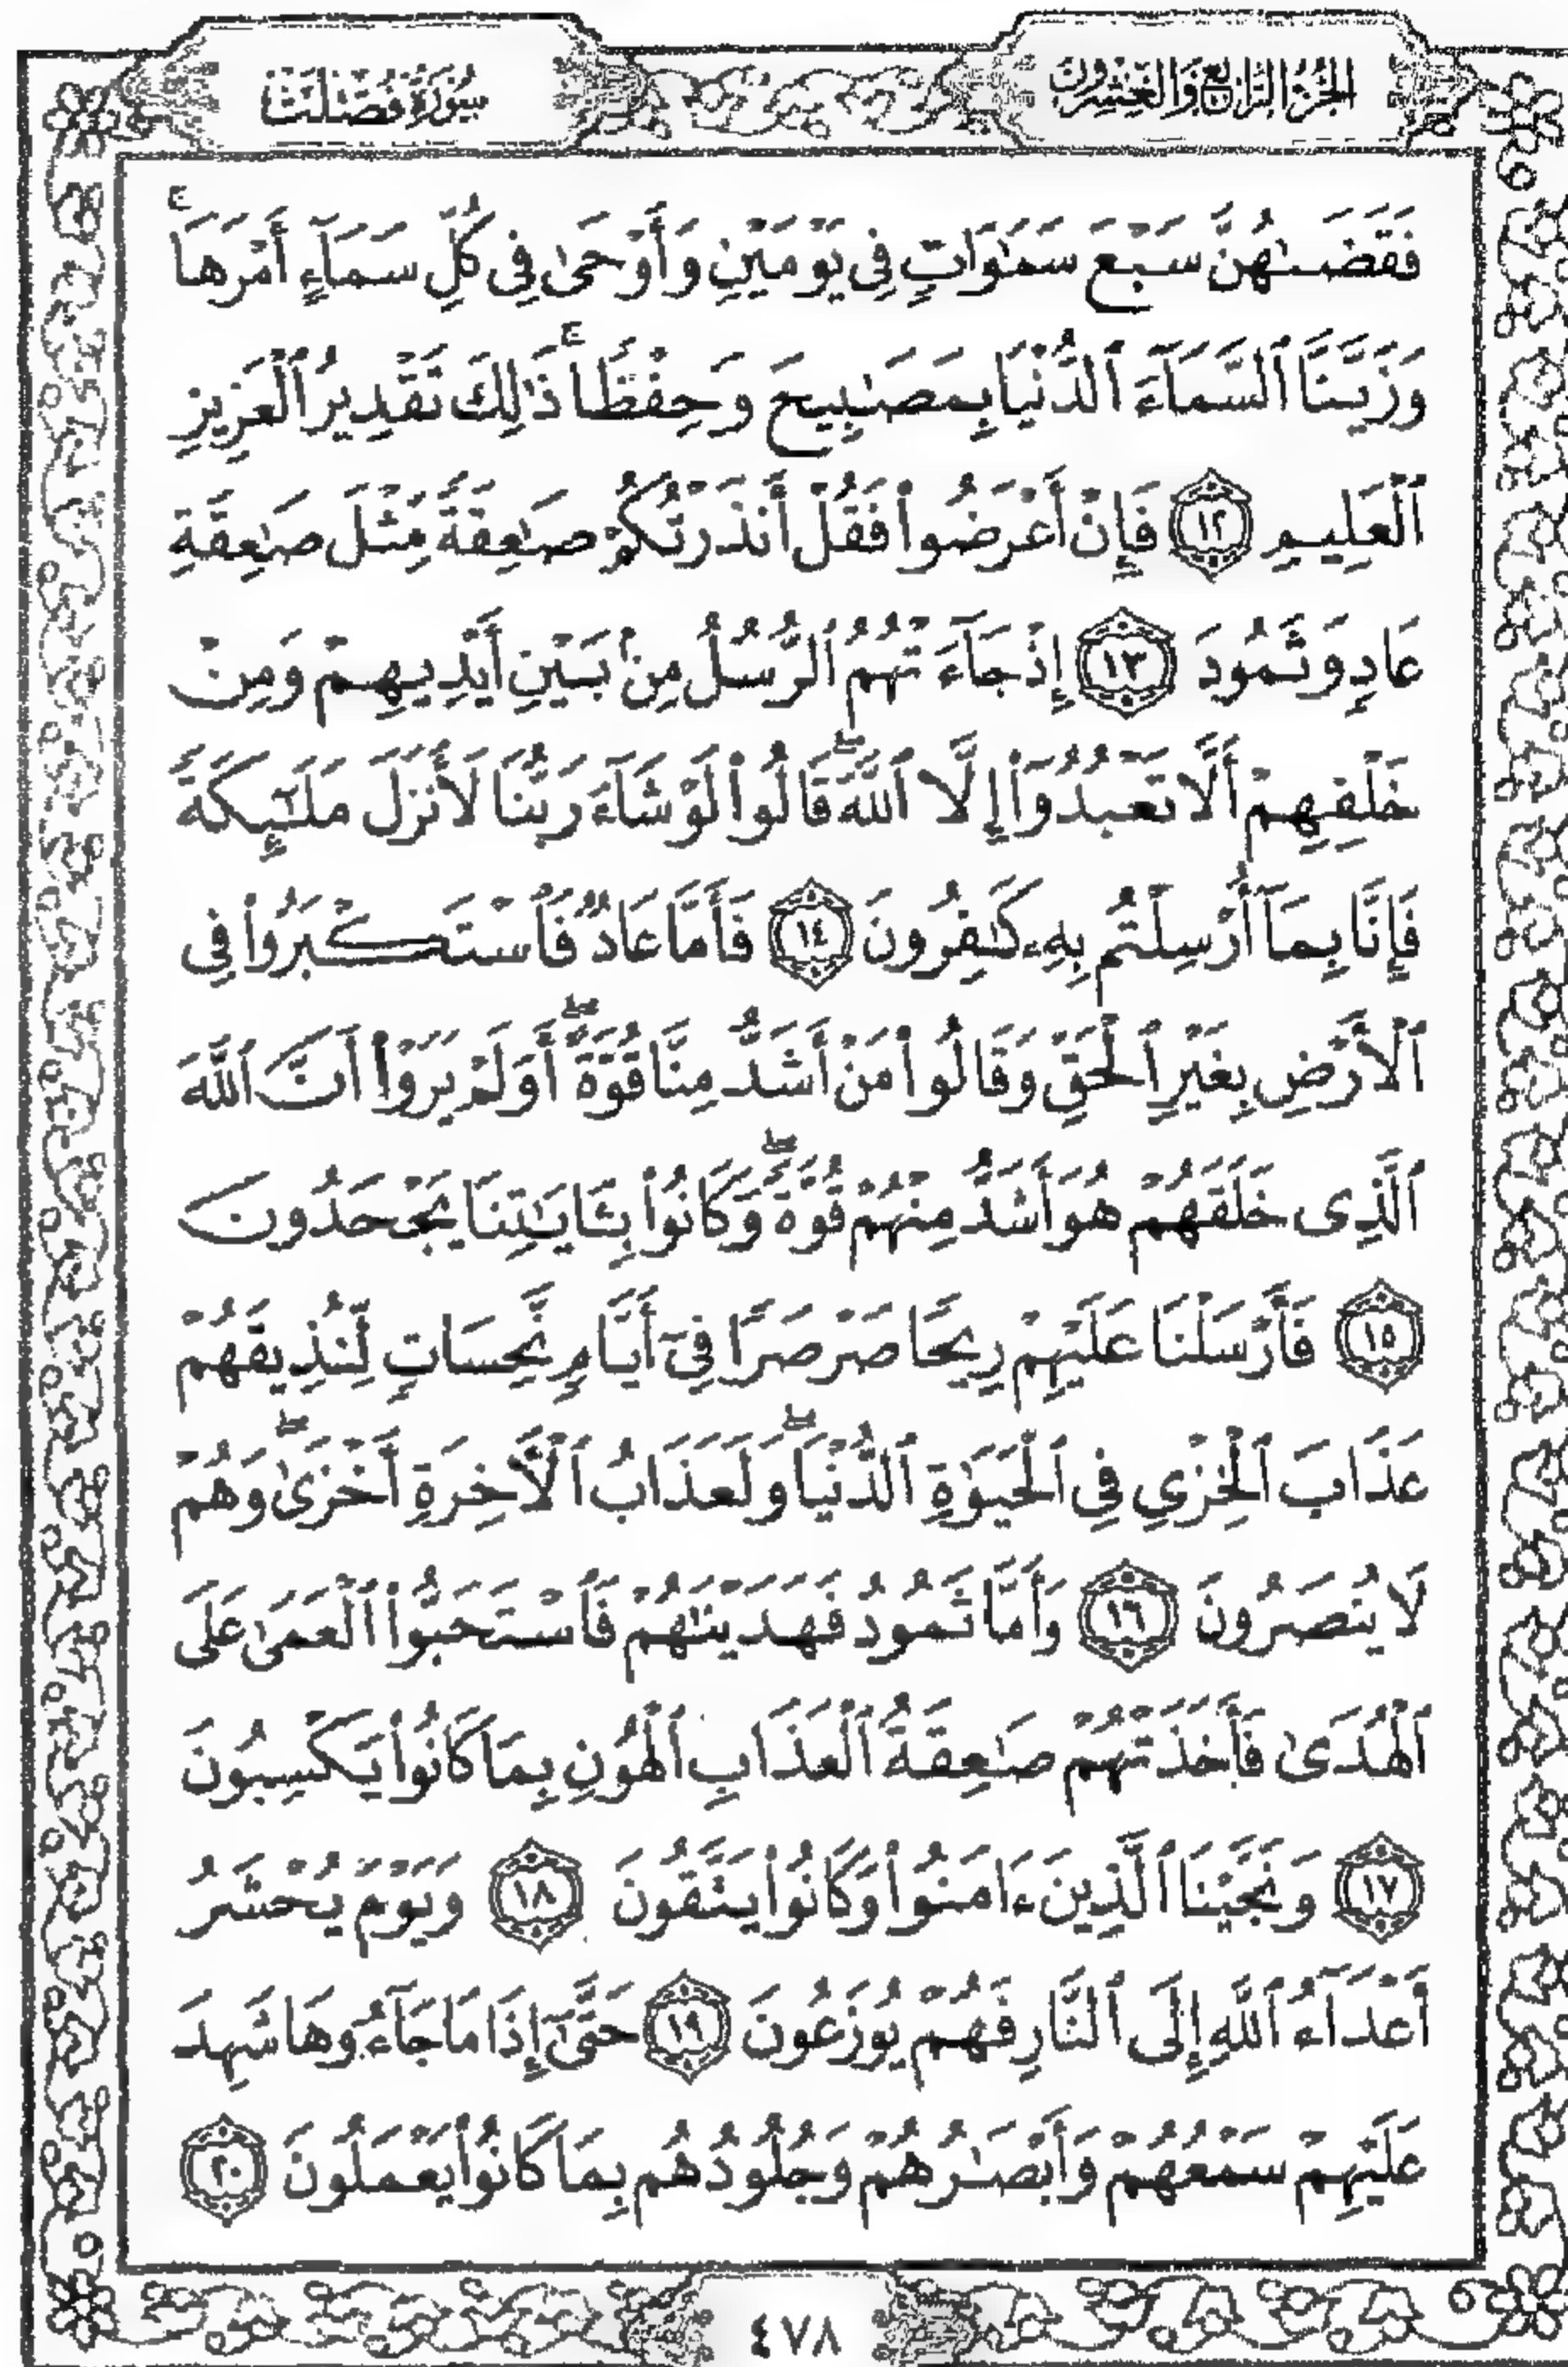 الجزء الرابع والعشرون
سورة فصلت
فَقَضَىٰهُنَّ سَبْعَ سَمَٰوَاتٍ فِي يَوْمَيْنِ وَأَوْحَىٰ فِي كُلِّ سَمَآءٍ أَمْرَهَا ۚ
وَزَيَّنَّا ٱلسَّمَآءَ ٱلدُّنْيَا بِمَصَٰبِيحَ وَحِفْظًا ۚ ذَٰلِكَ تَقْدِيرُ ٱلْعَزِيزِ
ٱلْعَلِيمِ ١٢ فَإِنْ أَعْرَضُوا۟ فَقُلْ أَنذَرْتُكُمْ صَٰعِقَةً مِّثْلَ صَٰعِقَةِ
عَادٍ وَثَمُودَ ١٣ إِذْ جَآءَتْهُمُ ٱلرُّسُلُ مِنۢ بَيْنِ أَيْدِيهِمْ وَمِنْ
خَلْفِهِمْ أَلَّا تَعْبُدُوٓا۟ إِلَّا ٱللَّهَ ۖ قَالُوا۟ لَوْ شَآءَ رَبُّنَا لَأَنزَلَ مَلَٰٓئِكَةً
فَإِنَّا بِمَآ أُرْسِلْتُم بِهِۦ كَٰفِرُونَ ١٤ فَأَمَّا عَادٌ فَٱسْتَكْبَرُوا۟ فِي
ٱلْأَرْضِ بِغَيْرِ ٱلْحَقِّ وَقَالُوا۟ مَنْ أَشَدُّ مِنَّا قُوَّةً ۖ أَوَلَمْ يَرَوْا۟ أَنَّ ٱللَّهَ
ٱلَّذِى خَلَقَهُمْ هُوَ أَشَدُّ مِنْهُمْ قُوَّةً ۖ وَكَانُوا۟ بِـَٔايَٰتِنَا يَجْحَدُونَ
١٥ فَأَرْسَلْنَا عَلَيْهِمْ رِيحًا صَرْصَرًا فِىٓ أَيَّامٍ نَّحِسَاتٍ لِّنُذِيقَهُمْ
عَذَابَ ٱلْخِزْىِ فِى ٱلْحَيَوٰةِ ٱلدُّنْيَا ۖ وَلَعَذَابُ ٱلْأَخِرَةِ أَخْزَىٰ ۖ وَهُمْ
لَا يُنصَرُونَ ١٦ وَأَمَّا ثَمُودُ فَهَدَيْنَٰهُمْ فَٱسْتَحَبُّوا۟ ٱلْعَمَىٰ عَلَى
ٱلْهُدَىٰ فَأَخَذَتْهُمْ صَٰعِقَةُ ٱلْعَذَابِ ٱلْهُونِ بِمَا كَانُوا۟ يَكْسِبُونَ
١٧ وَنَجَّيْنَا ٱلَّذِينَ ءَامَنُوا۟ وَكَانُوا۟ يَتَّقُونَ ١٨ وَيَوْمَ يُحْشَرُ
أَعْدَآءُ ٱللَّهِ إِلَى ٱلنَّارِ فَهُمْ يُوزَعُونَ ١٩ حَتَّىٰٓ إِذَا مَا جَآءُوهَا شَهِدَ
عَلَيْهِمْ سَمْعُهُمْ وَأَبْصَٰرُهُمْ وَجُلُودُهُم بِمَا كَانُوا۟ يَعْمَلُونَ ٢٠
٤٧٨